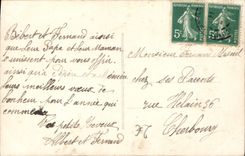 Albert et Fernand ainsi
que leur Papa et leur Maman
s'unissent pour vous offrir
ainsi que
leurs meilleurs vœux de
bonheur pour l'année qui
commence
Vos petits Neveux
Albert et Fernand
5
5
Monsieur Fernand
chez ses Parents
rue Hélain 56
Cherbourg